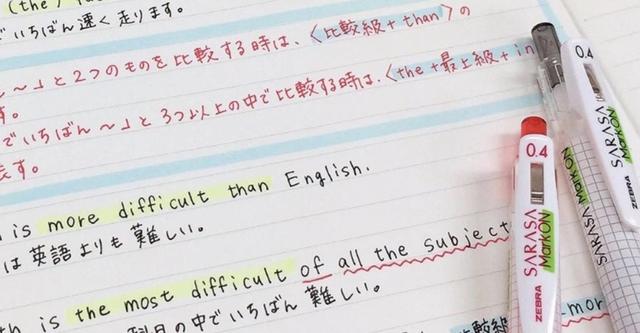 (the)
でいちばん速く走ります。
～」と2つのものを比較する時は、〈比較級+than〉の
す。
でいちばん～」と3つ以上の中で比較する時は、〈the+最上級+in
表す。
is more difficult than English.
は英語よりも難しい。
is the most difficult of all the subject
科目の中でいちばん難しい。
比較級
-mor
0.4
SARASA
MarkON
ZEBRA
0.4
SARASA
MarkON
ZEBRA
SARASA
MarkON